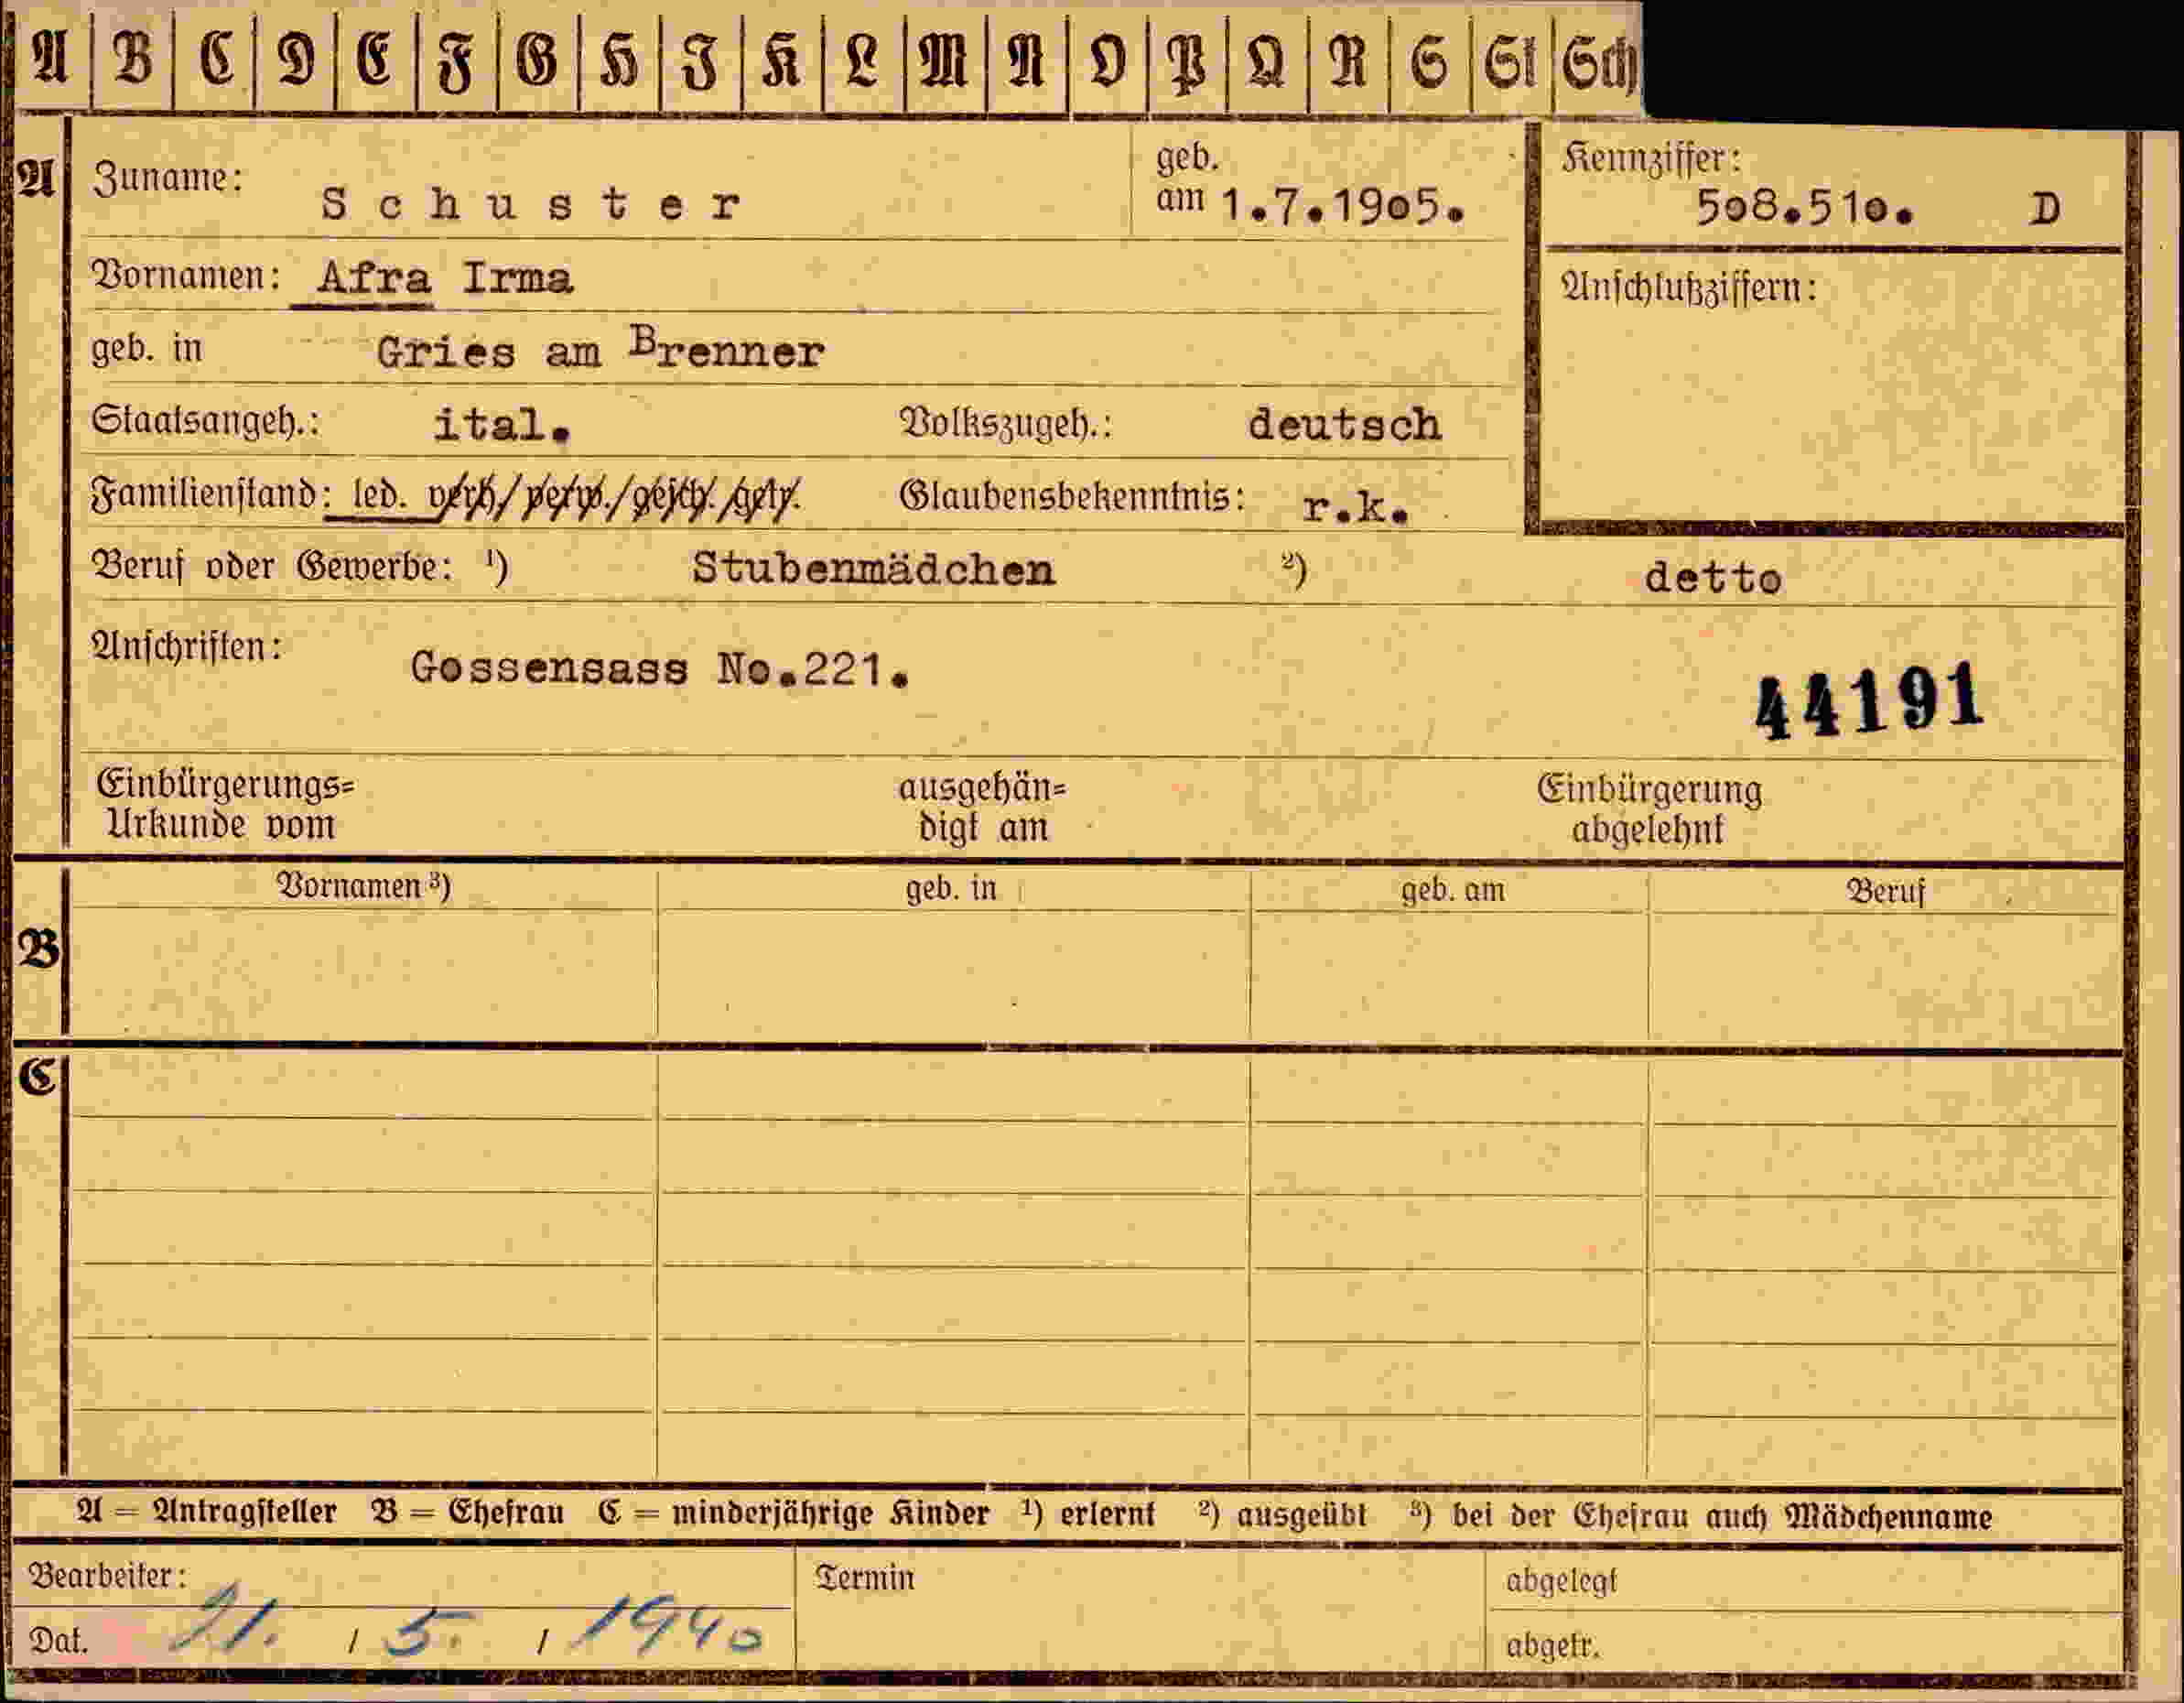 A B C D E F G H I K L M N O P Q R S St Sch
A
Zuname: Schuster
geb. am 1.7.1905.
Kennziffer:
508.510. D
Vornamen: Afra Irma
Anschlußziffern:
geb. in Gries am Brenner
Staatsangeh.: ital. Volkszugeh.: deutsch
Familienstand: led. verh/verw./gesch./getr. Glaubensbekenntnis: r.k.
Beruf oder Gewerbe: ¹) Stubenmädchen ²) detto
Anschriften: Gossensass No.221.
44191
Einbürgerungs= ausgehän= Einbürgerung
Urkunde vom digt am abgelehnt
B
Vornamen ³) geb. in geb. am Beruf
C
A = Antragsteller B = Ehefrau C = minderjährige Kinder ¹) erlernt ²) ausgeübt ³) bei der Ehefrau auch Mädchenname
Bearbeiter: Termin abgelegt
Dat. 21. / 5. / 1940 abgetr.